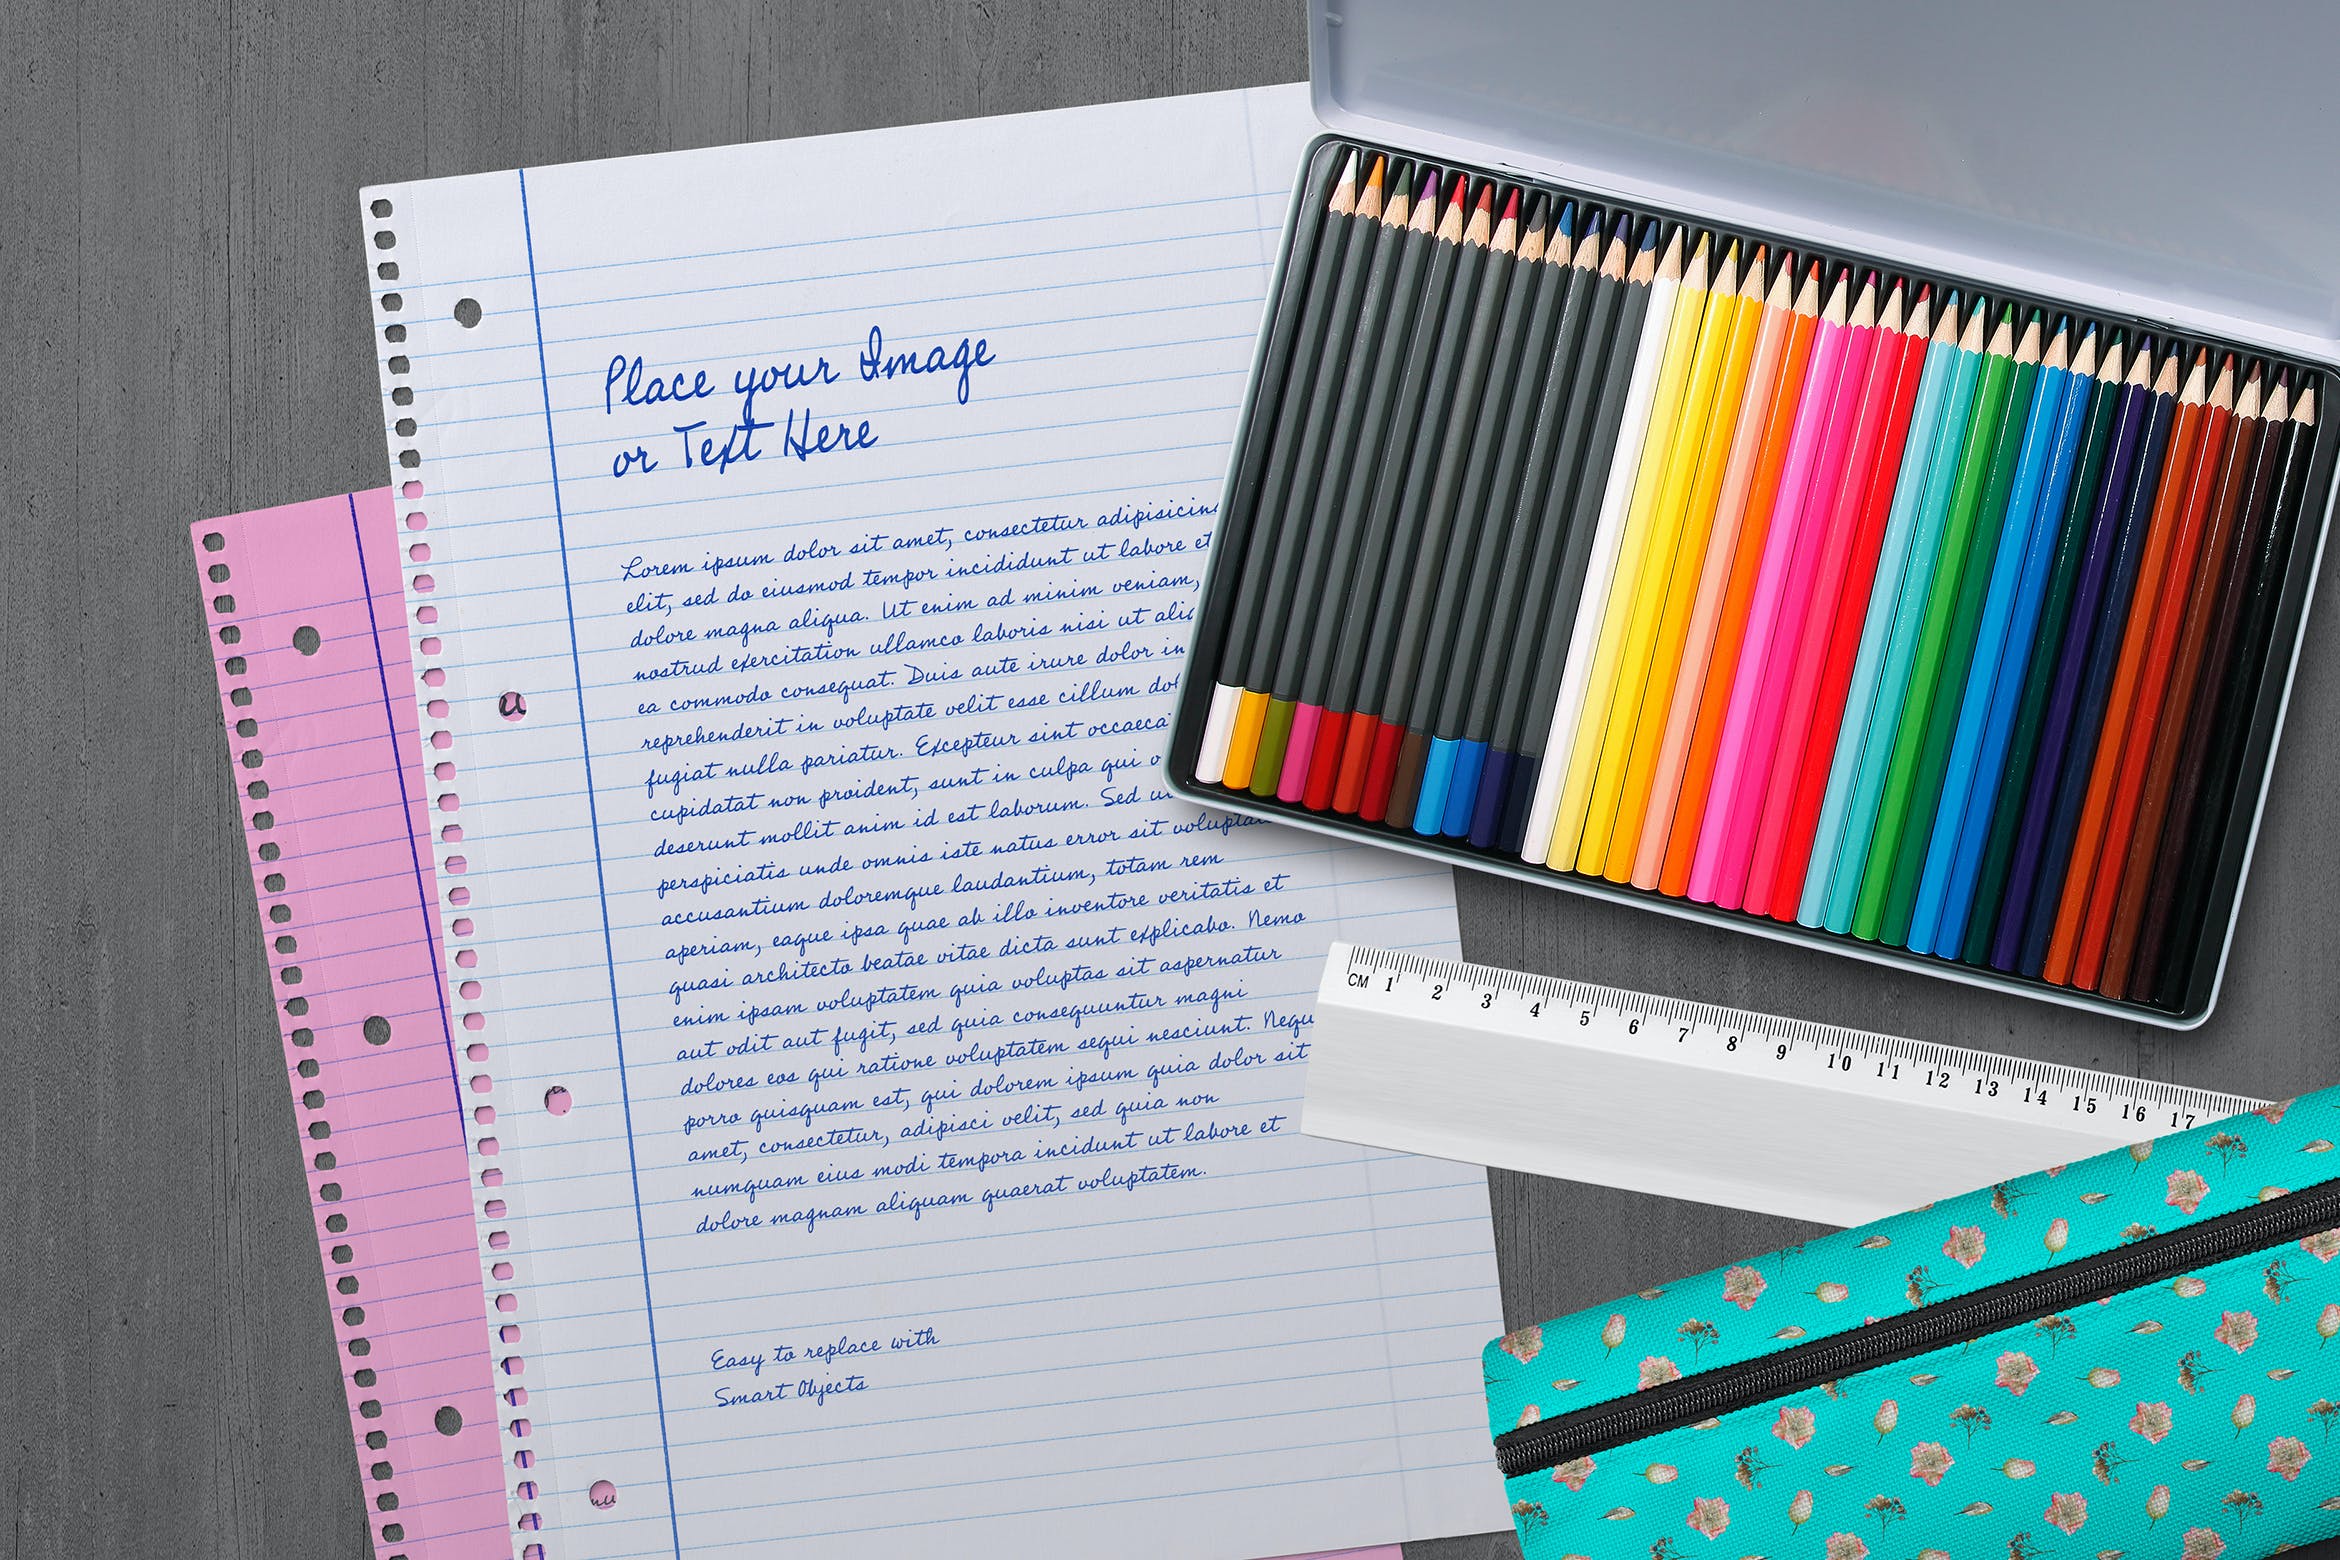 Place your Image
or Text Here
Lorem ipsum dolor sit amet, consectetur adipisicing
elit, sed do eiusmod tempor incididunt ut labore et
dolore magna aliqua. Ut enim ad minim veniam,
nostrud exercitation ullamco laboris nisi ut aliq
ea commodo consequat. Duis aute irure dolor in
reprehenderit in voluptate velit esse cillum dol
fugiat nulla pariatur. Excepteur sint occaeca
cupidatat non proident, sunt in culpa qui o
deserunt mollit anim id est laborum. Sed u
perspiciatis unde omnis iste natus error sit voluptat
accusantium doloremque laudantium, totam rem
aperiam, eaque ipsa quae ab illo inventore veritatis et
quasi architecto beatae vitae dicta sunt explicabo. Nemo
enim ipsam voluptatem quia voluptas sit aspernatur
aut odit aut fugit, sed quia consequuntur magni
dolores eos qui ratione voluptatem sequi nesciunt. Nequ
porro quisquam est, qui dolorem ipsum quia dolor sit
amet, consectetur, adipisci velit, sed quia non
numquam eius modi tempora incidunt ut labore et
dolore magnam aliquam quaerat voluptatem.
Easy to replace with
Smart Objects
CM 1 2 3 4 5 6 7 8 9 10 11 12 13 14 15 16 17